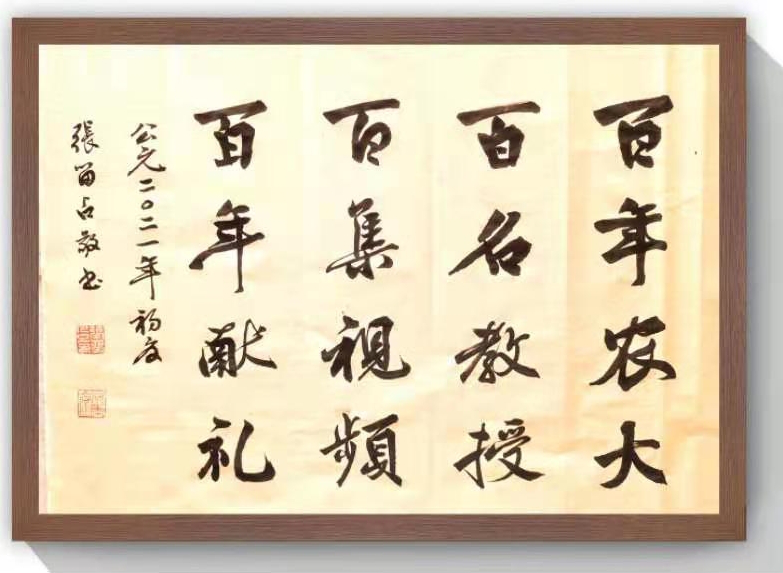 百年农大
百名教授
百集視頻
百年献礼
公元二〇二一年初夏
張留占敬书